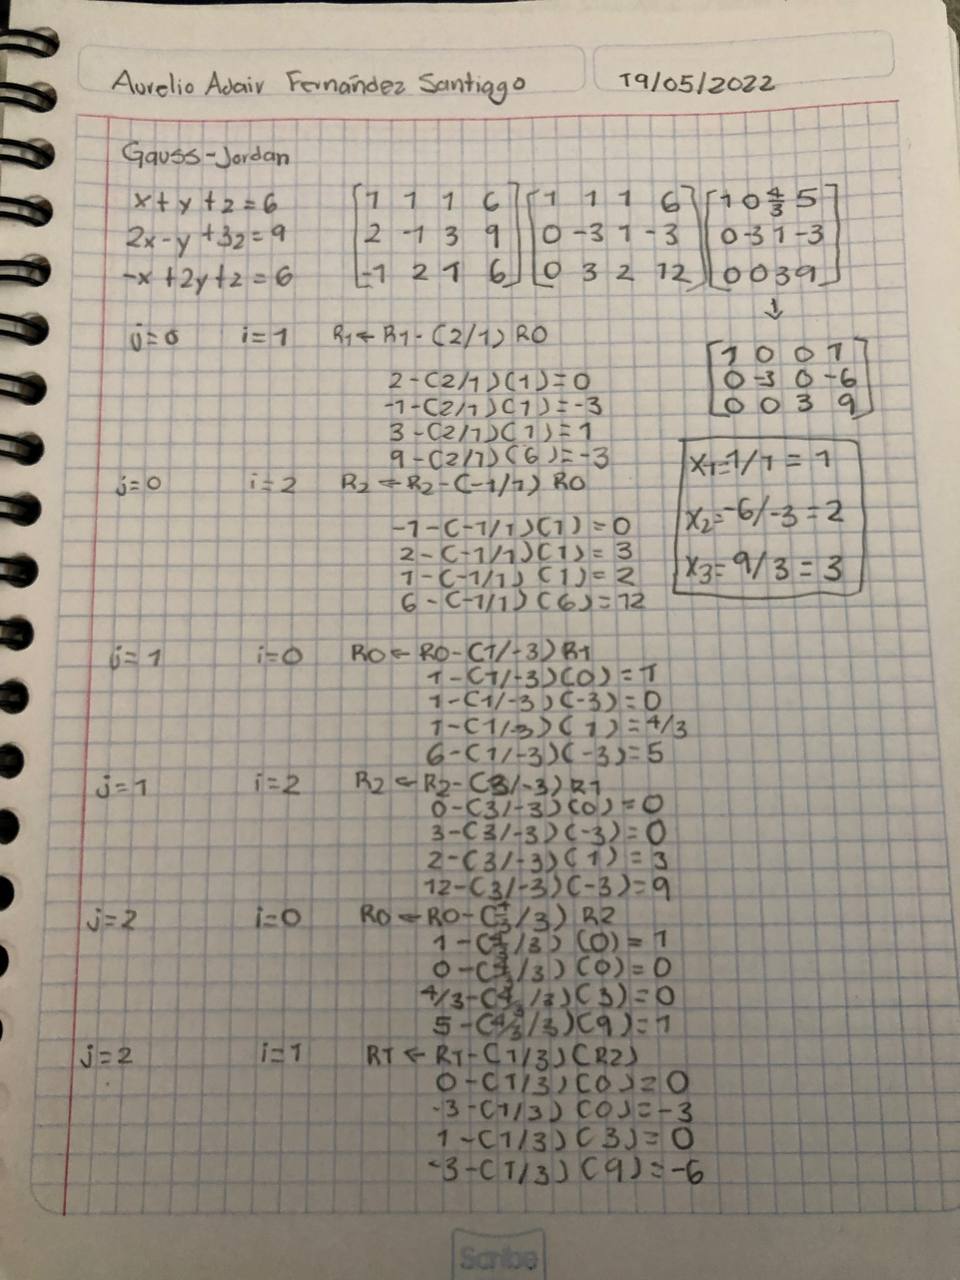 Aurelio Adair Fernández Santiago
19/05/2022
Gauss-Jordan
x+y+z=6
2x-y+3z=9
-x+2y+z=6
[1 1 1 6] [1 1 1 6] [1 0 4/3 5]
[2 -1 3 9] [0 -3 1 -3] [0 -3 1 -3]
[-1 2 1 6] [0 3 2 12] [0 0 3 9]
↓
[1 0 0 1]
[0 -3 0 -6]
[0 0 3 9]
x1=1/1=1
x2=-6/-3=2
x3=9/3=3
j=0 i=1 R1←R1-(2/1) R0
2-(2/1)(1)=0
-1-(2/1)(1)=-3
3-(2/1)(1)=1
9-(2/1)(6)=-3
j=0 i=2 R2←R2-(-1/1) R0
-1-(-1/1)(1)=0
2-(-1/1)(1)=3
1-(-1/1)(1)=2
6-(-1/1)(6)=12
j=1 i=0 R0←R0-(1/-3)R1
1-(1/-3)(0)=1
1-(1/-3)(-3)=0
1-(1/-3)(1)=4/3
6-(1/-3)(-3)=5
j=1 i=2 R2←R2-(3/-3)R1
0-(3/-3)(0)=0
3-(3/-3)(-3)=0
2-(3/-3)(1)=3
12-(3/-3)(-3)=9
j=2 i=0 R0←R0-(4/3/3) R2
1-(4/3/3)(0)=1
0-(4/3/3)(0)=0
4/3-(4/3/3)(3)=0
5-(4/3/3)(9)=1
j=2 i=1 R1←R1-(1/3)(R2)
0-(1/3)(0)=0
-3-(1/3)(0)=-3
1-(1/3)(3)=0
-3-(1/3)(9)=-6
Scribe